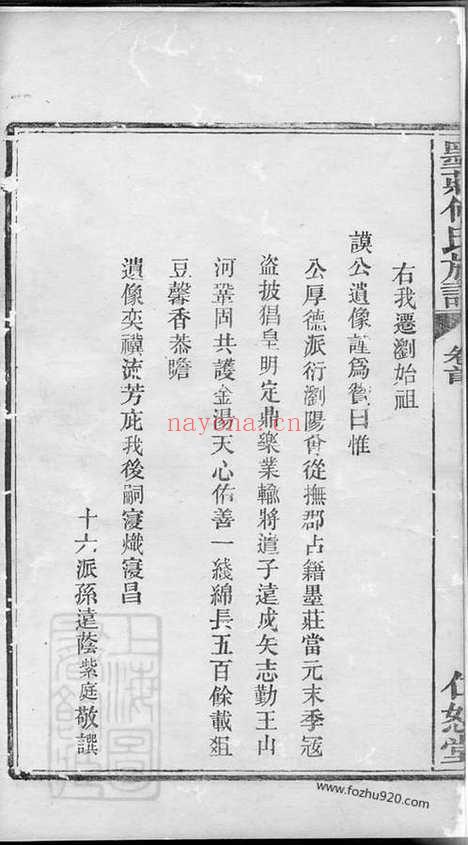 墨莊何氏族譜 卷首 仁恕堂
右我遷瀏始祖
謨公遺像謹爲贊曰惟
公厚德派衍瀏陽曾從撫郡占籍墨莊當元末季寇
盜披猖皇明定鼎樂業輸將遣子遠戍矢志勤王山
河鞏固共護金湯天心佑善一綫綿長五百餘載俎
豆馨香恭瞻
遺像奕禩流芳庇我後嗣寖熾寖昌
十六派孫遠蔭紫庭敬譔
nayona.cn
www.fozhu920.com